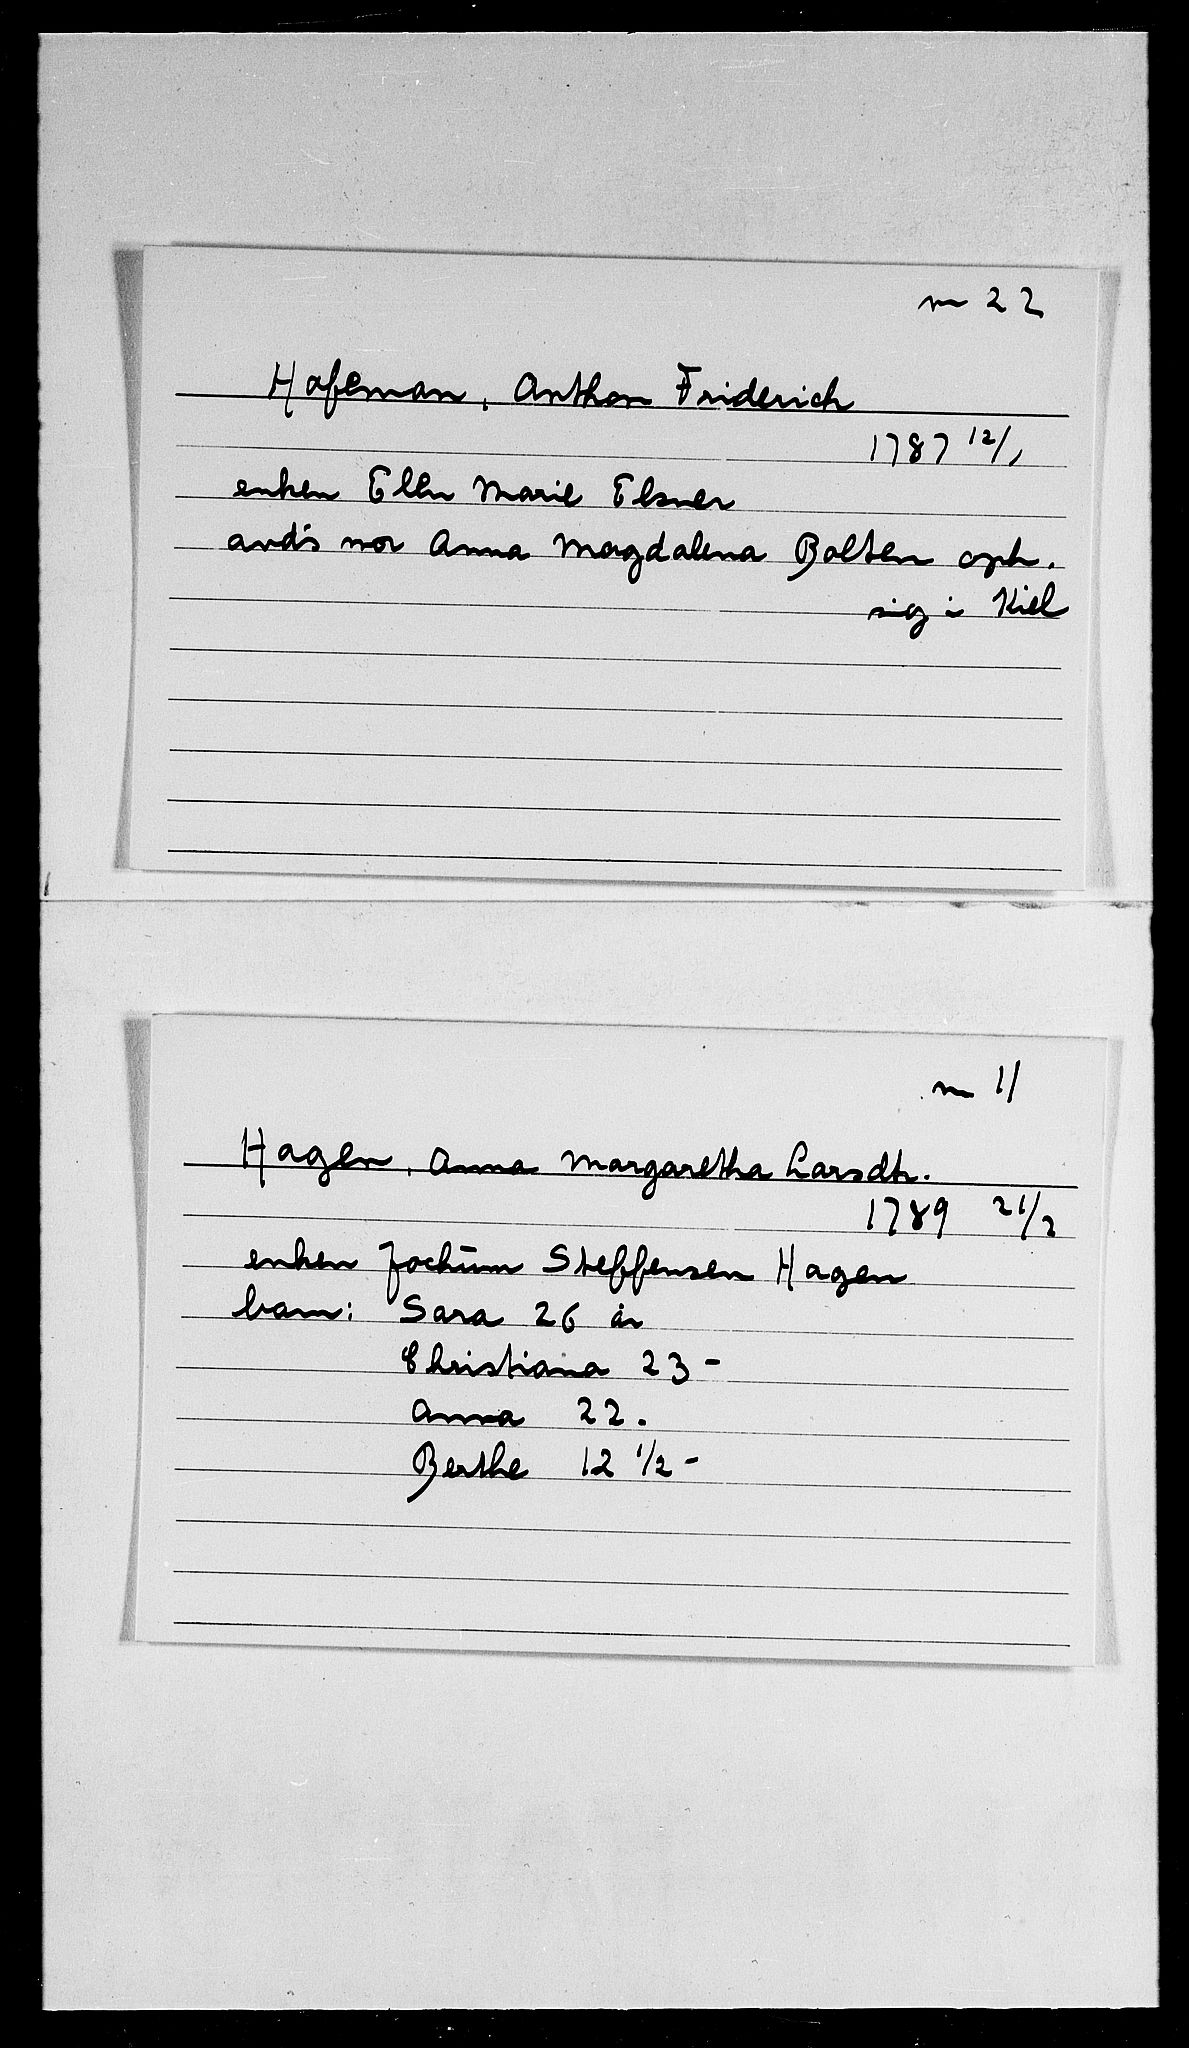 m 22
Hafeman, Anthon Friderich
1787 12/1
enken Ellen Marie Elsner
avd's mor Anna Magdalena Bolten oph.
sig i Kiel
m 11
Hagen, Anna Margaretha Larsdtr.
1789 21/2
enken Jochum Steffensen Hagen
barn: Sara 26 år
Christiana 23 -
Anna 22 .
Berthe 12 1/2 -